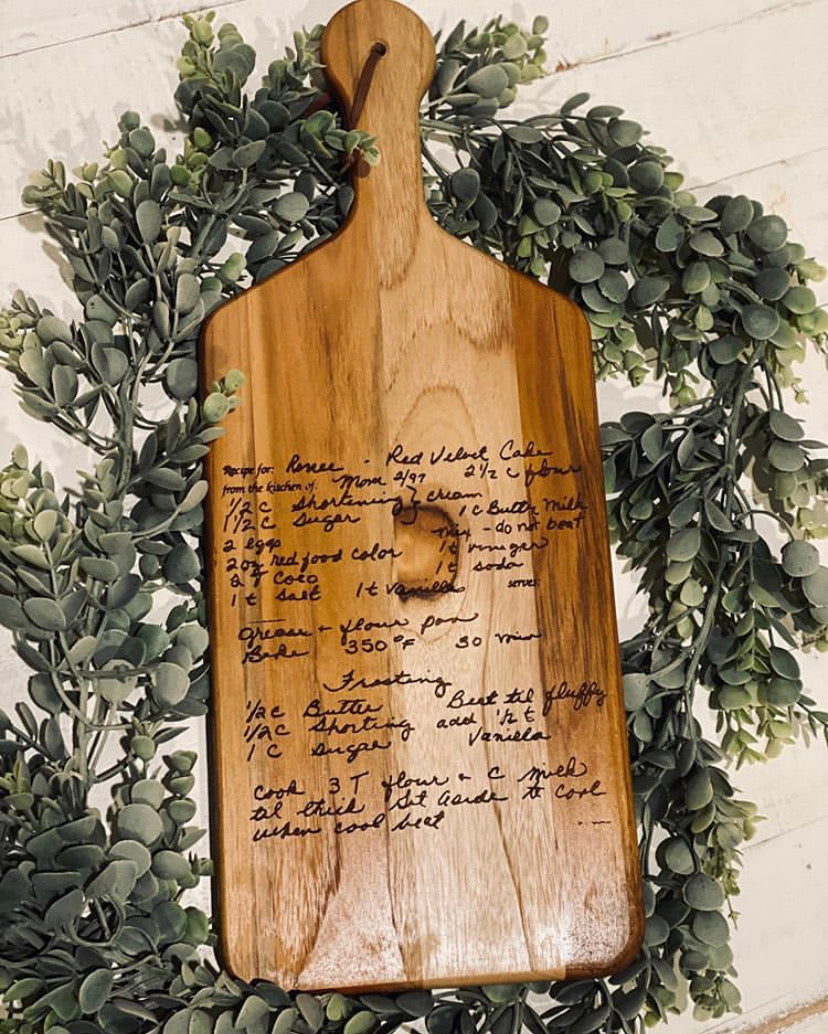 Recipe for: Renee - Red Velvet Cake
from the kitchen of: Mom 2/97 2 1/2 c flour
1/2 c Shortening } cream
1 1/2 c Sugar 1 c Butter Milk
2 eggs mix - do not beat
2 oz red food color 1 t vinegar
2 T Coco 1 t soda
1 t salt 1 t Vanilla serves:
Grease + flour pan
Bake 350°F 30 min
Frosting
1/2 c Butter Beat til fluffy
1/2 c Shorting add 1/2 t
1 C Sugar Vanilla
Cook 3 T flour + C milk
til thick Set aside to cool
when cool beat